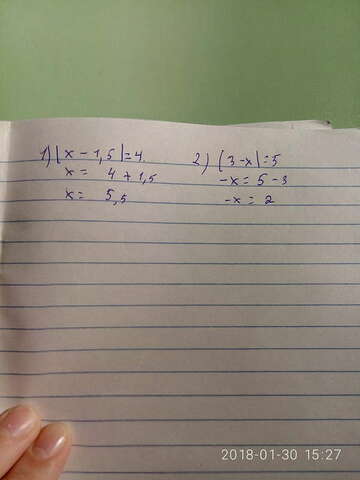 1) |x - 1,5|=4.
x = 4 + 1,5
x = 5,5
2) |3-x|=5
-x = 5 - 3
-x = 2
2018-01-30 15:27